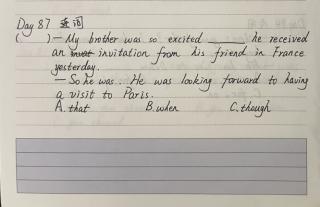 Day 87
( )— My brother was so excited ____ he received
an invitation from his friend in France
yesterday.
— So he was... He was looking forward to having
a visit to Paris.
A. that B. when C. though